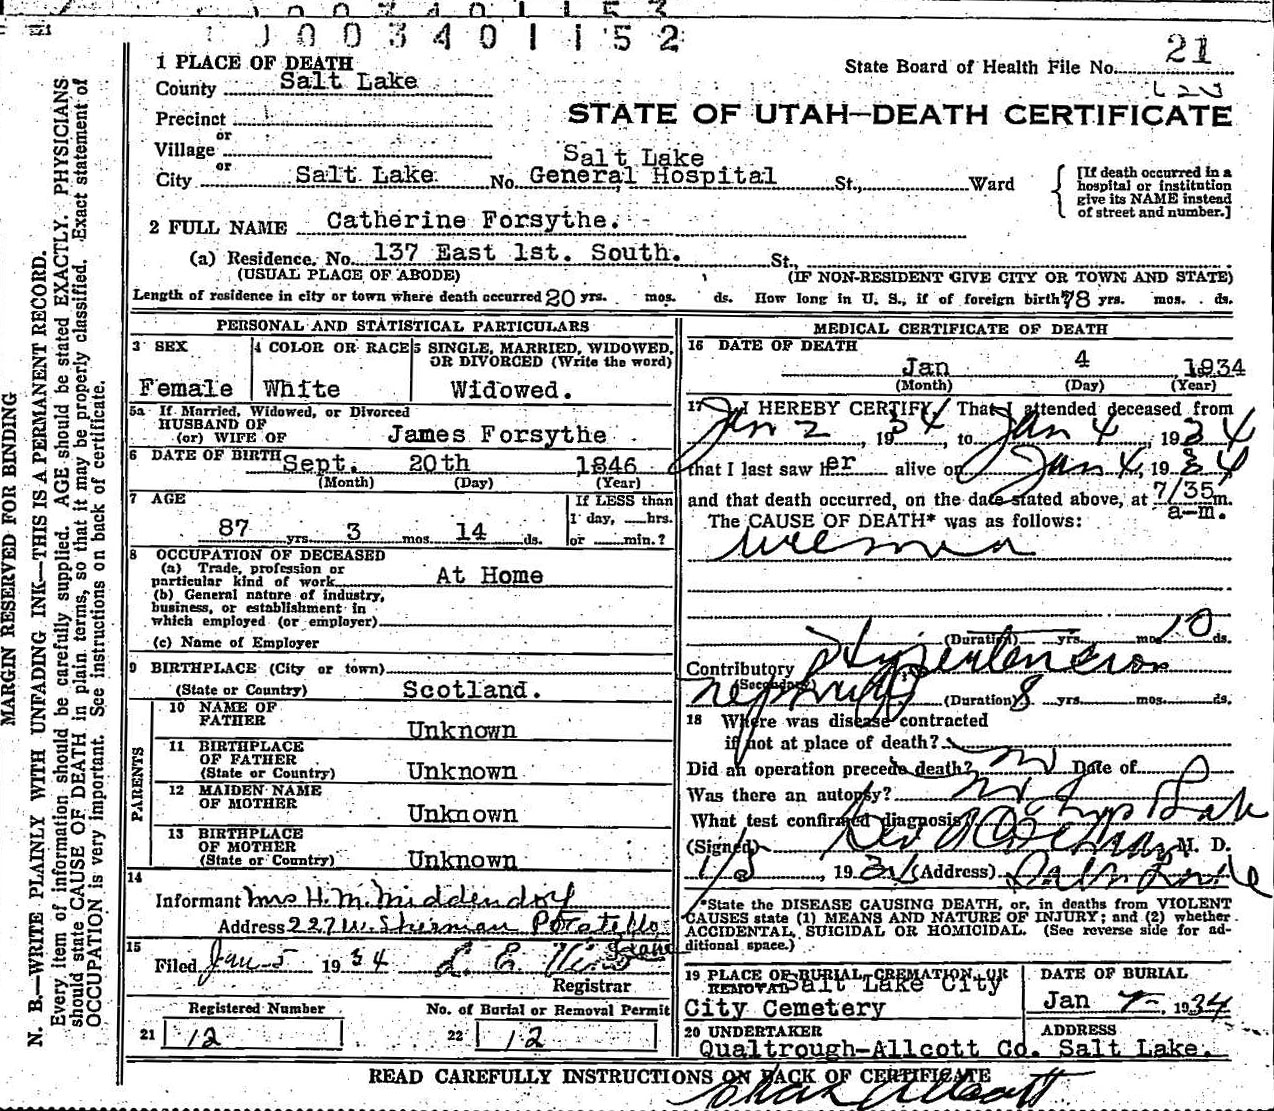 0 0 3 4 0 1 1 5 2
21
State Board of Health File No.
STATE OF UTAH—DEATH CERTIFICATE
1 PLACE OF DEATH
County Salt Lake
Precinct
or
Village
or
City Salt Lake No. Salt Lake General Hospital St., Ward
[If death occurred in a hospital or institution give its NAME instead of street and number.]
2 FULL NAME Catherine Forsythe.
(a) Residence. No. 137 East 1st. South. St.,
(USUAL PLACE OF ABODE) (IF NON-RESIDENT GIVE CITY OR TOWN AND STATE)
Length of residence in city or town where death occurred 20 yrs. mos. ds. How long in U. S., if of foreign birth? 78 yrs. mos. ds.
PERSONAL AND STATISTICAL PARTICULARS
3 SEX
Female
4 COLOR OR RACE
White
5 SINGLE, MARRIED, WIDOWED, OR DIVORCED (Write the word)
Widowed.
5a If Married, Widowed, or Divorced
HUSBAND OF
(or) WIFE OF James Forsythe
6 DATE OF BIRTH Sept. 20th 1846
(Month) (Day) (Year)
7 AGE
87 yrs. 3 mos. 14 ds.
If LESS than
1 day, hrs.
or min.?
8 OCCUPATION OF DECEASED
(a) Trade, profession or
particular kind of work At Home
(b) General nature of industry,
business, or establishment in
which employed (or employer)
(c) Name of Employer
9 BIRTHPLACE (City or town)
(State or Country) Scotland.
PARENTS
10 NAME OF
FATHER Unknown
11 BIRTHPLACE
OF FATHER
(State or Country) Unknown
12 MAIDEN NAME
OF MOTHER Unknown
13 BIRTHPLACE
OF MOTHER
(State or Country) Unknown
14
Informant Mrs H. M. Middendorf
Address 227 W. Sherman Pocatello
15
Filed Jan 5 1934 L. E.
Registrar
Registered Number
21 12
No. of Burial or Removal Permit
22 12
MEDICAL CERTIFICATE OF DEATH
16 DATE OF DEATH
Jan 4 1934
(Month) (Day) (Year)
17 I HEREBY CERTIFY, That I attended deceased from
Jan 2, 1934, to Jan 4, 1934
that I last saw her alive on Jan 4, 1934
and that death occurred, on the date stated above, at 7/35 m.
a-m.
The CAUSE OF DEATH* was as follows:
Uremia
(Duration) yrs. mos. 10 ds.
Contributory Hypertension
(Secondary)
(Duration) 8 yrs. mos. ds.
18 Where was disease contracted
if not at place of death?
Did an operation precede death? no Date of
Was there an autopsy? no
What test confirmed diagnosis?
(Signed) M. D.
, 1934 (Address) Salt Lake
*State the DISEASE CAUSING DEATH, or, in deaths from VIOLENT
CAUSES state (1) MEANS AND NATURE OF INJURY; and (2) whether
ACCIDENTAL, SUICIDAL OR HOMICIDAL. (See reverse side for additional space.)
19 PLACE OF BURIAL, CREMATION, OR
REMOVAL Salt Lake City
City Cemetery
DATE OF BURIAL
Jan 7 1934
20 UNDERTAKER
Qualtrough-Allcott Co.
ADDRESS
Salt Lake.
READ CAREFULLY INSTRUCTIONS ON BACK OF CERTIFICATE
MARGIN RESERVED FOR BINDING
N. B.—WRITE PLAINLY WITH UNFADING INK—THIS IS A PERMANENT RECORD.
Every item of information should be carefully supplied. AGE should be stated EXACTLY. PHYSICIANS
should state CAUSE OF DEATH in plain terms, so that it may be properly classified. Exact statement of
OCCUPATION is very important. See instructions on back of certificate.